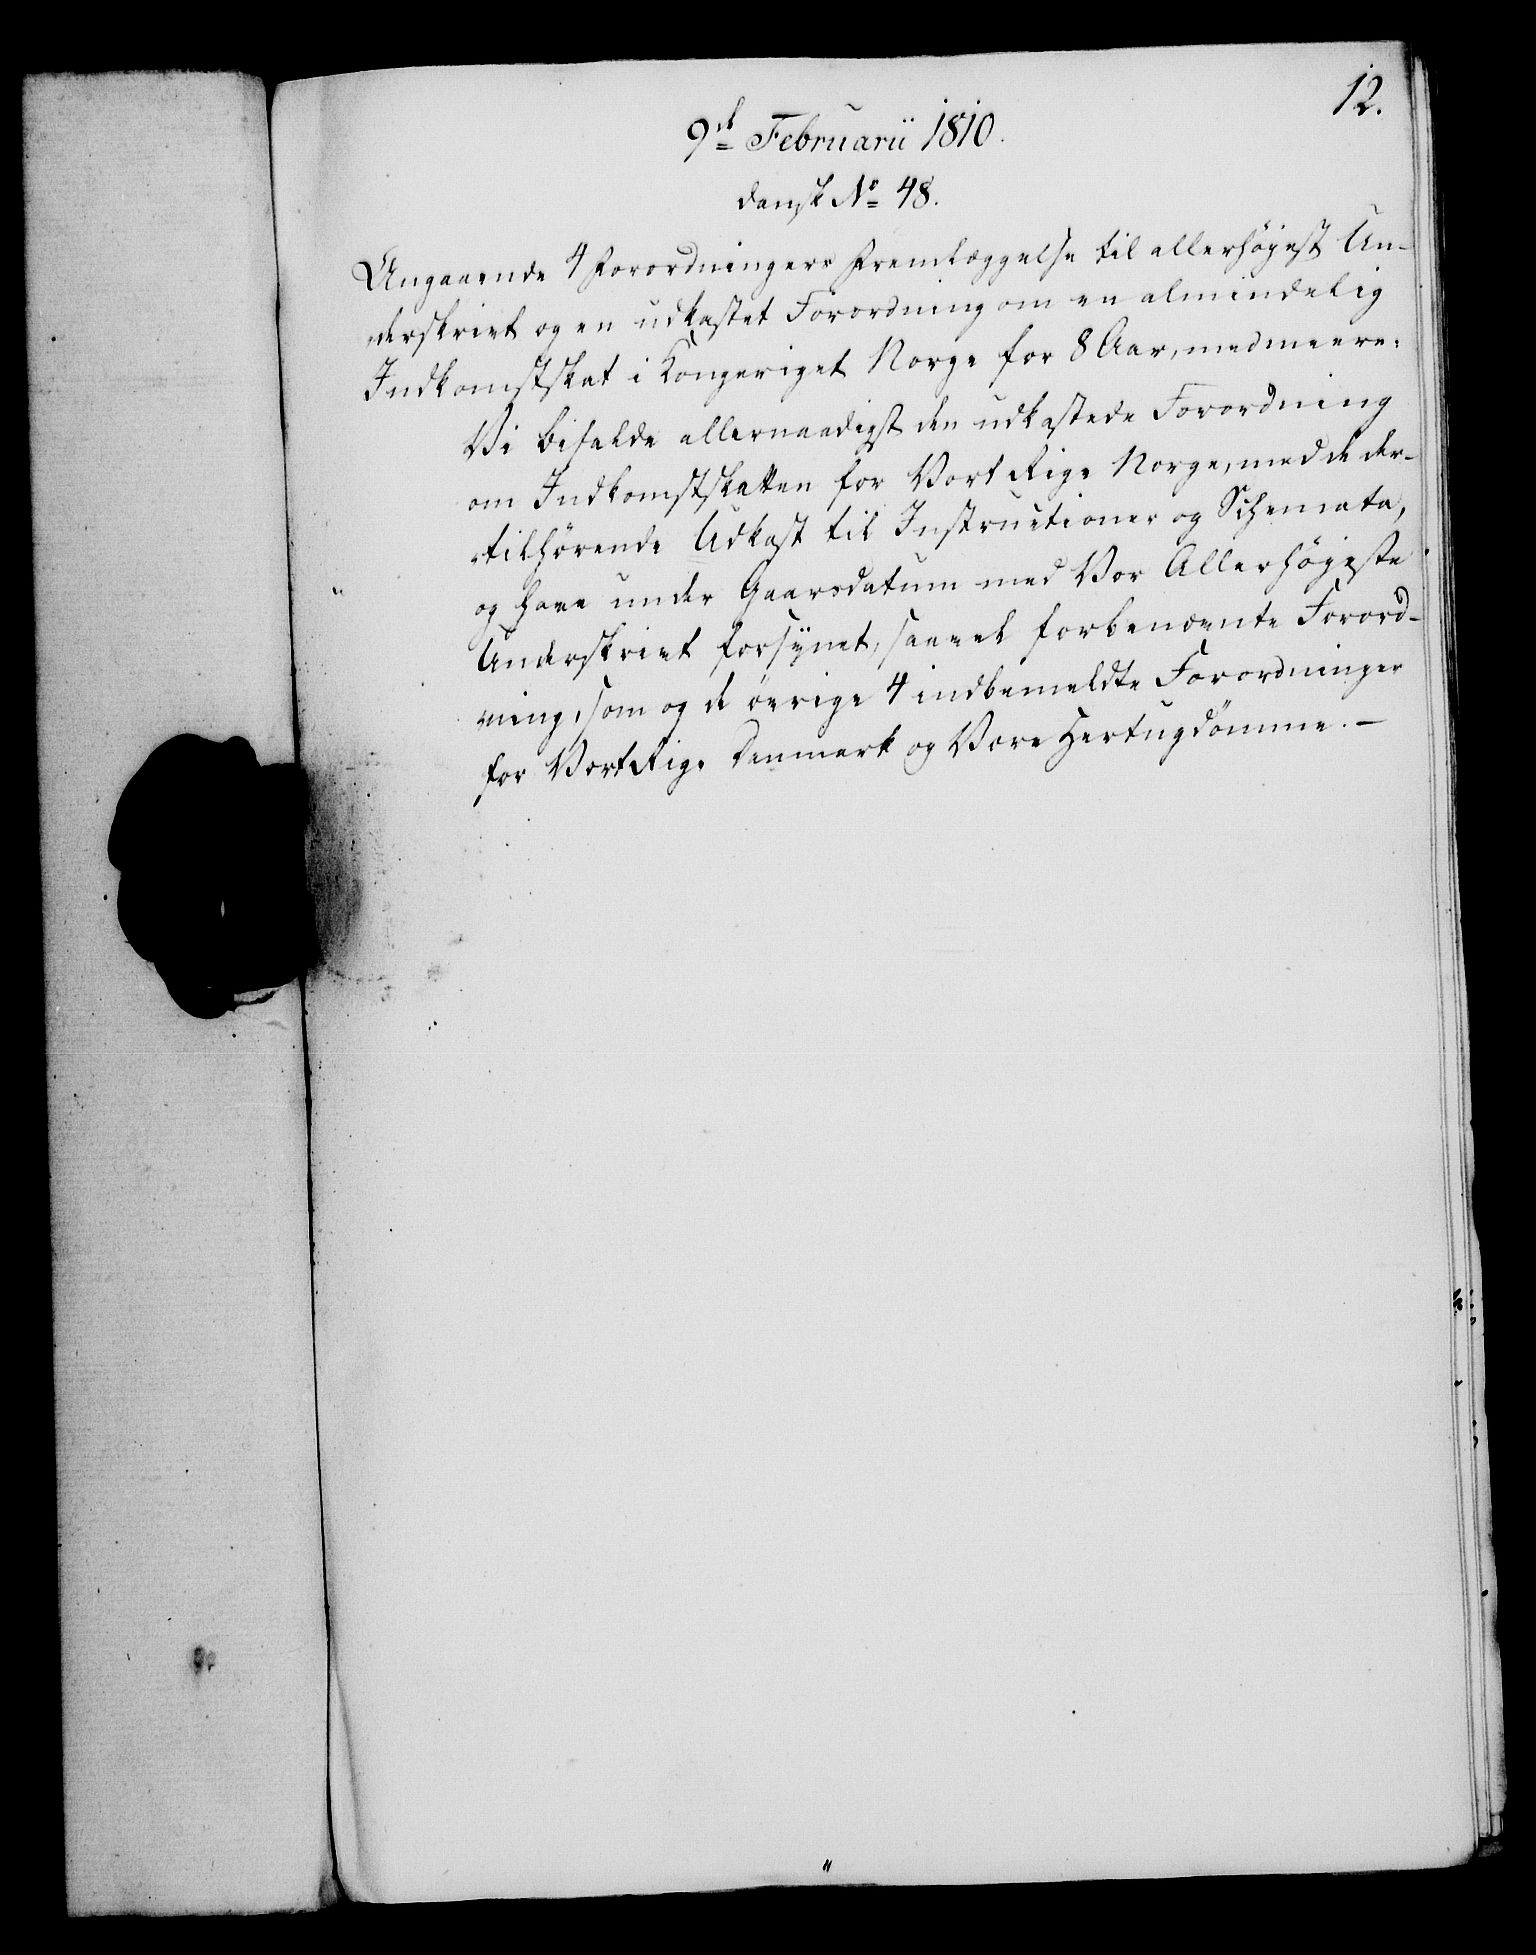 12.
9d Februarii 1810.
dansk No 48.
Angaaende 4 Forordningers Fremlæggelse til allerhöjest Un-
derskrivt og en udkastet Forordning om en almindelig
Indkomstskat i Kongeriget Norge for 8 Aar, med meere.
Vi bifalde allernaadigst den udkastede Forordning
om Indkomstskatten for Vort Rige Norge, med de der-
tilhörende Udkast til Instructioner og Schemata,
og have under Gaarsdatum med Vor Allerhöjeste
Underskrivt forsÿnet, saavel forbenævnte Forord-
ning, som og de övrige 4 indbemeldte Forordninger
for Vort Rige Danmark og Vore Hertugdömme. –